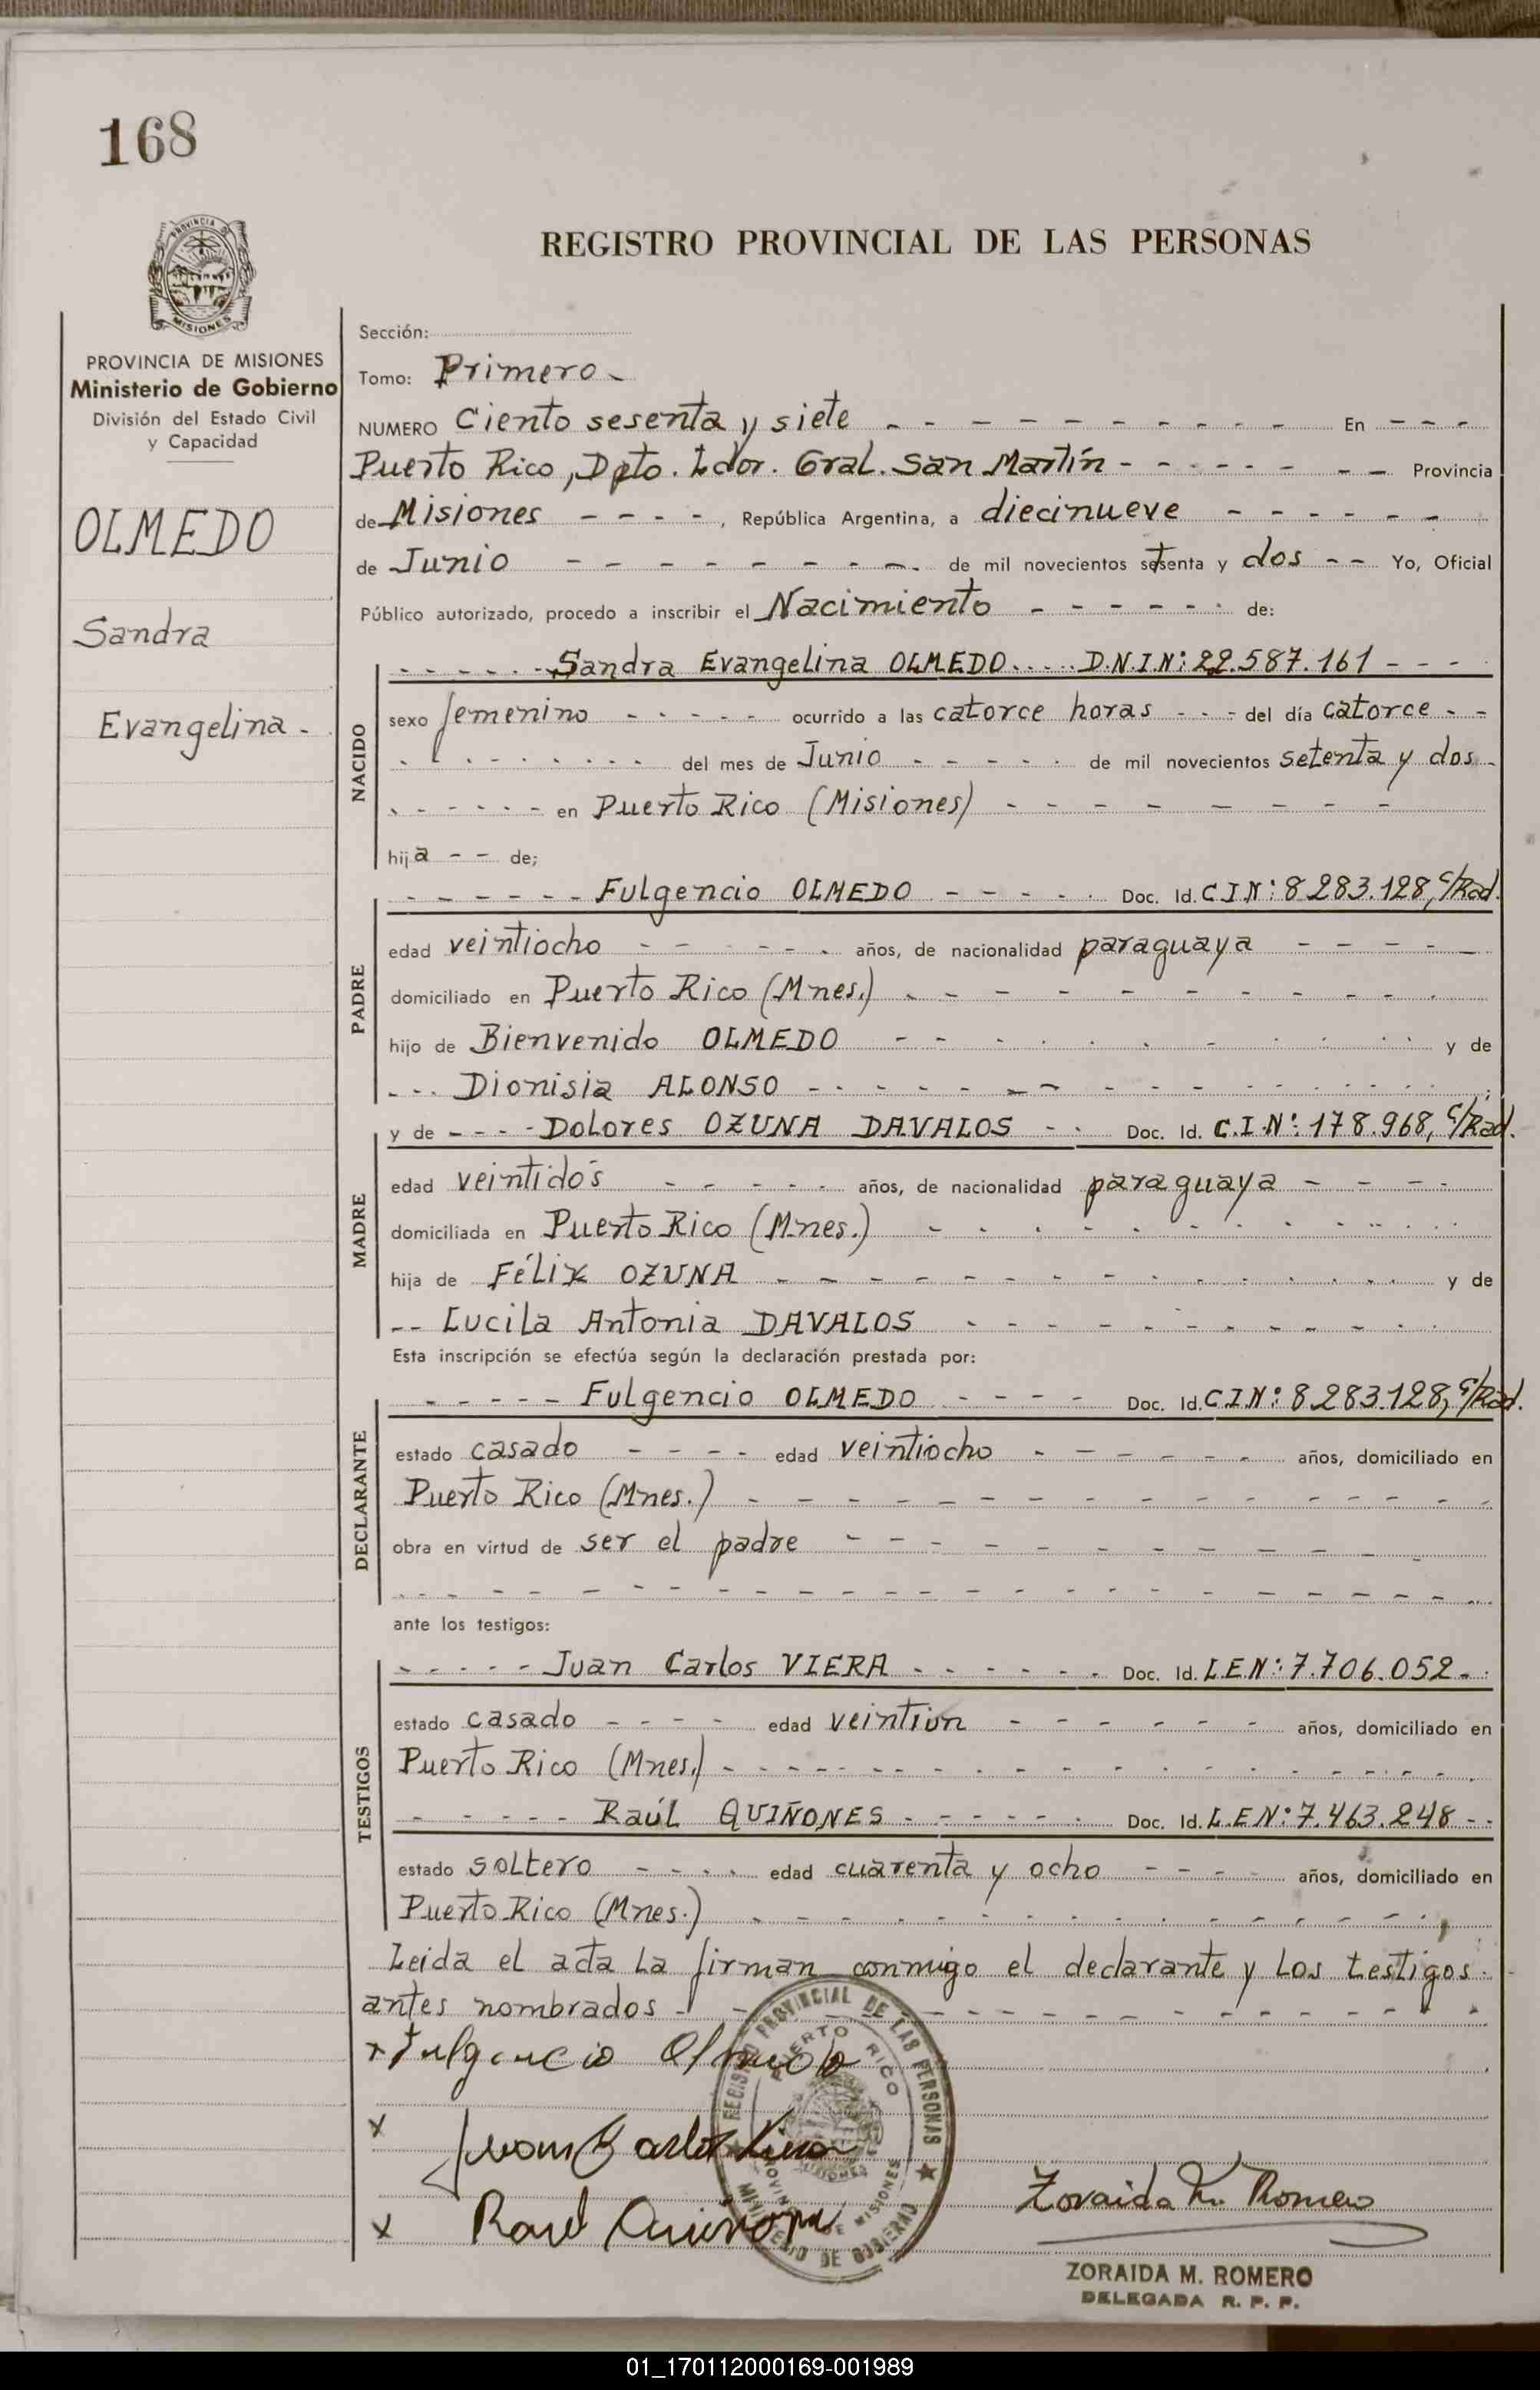 168
REGISTRO PROVINCIAL DE LAS PERSONAS
PROVINCIA DE MISIONES
PROVINCIA DE MISIONES
Ministerio de Gobierno
División del Estado Civil
y Capacidad
OLMEDO
Sandra
Evangelina -
Sección:
Tomo: Primero -
NUMERO Ciento sesenta y siete - - - - - - - - - En - - - -
Puerto Rico, Dpto. Ldor. Gral. San Martín - - - - - - - - Provincia
de Misiones - - - - , República Argentina, a diecinueve - - - - - -
de Junio - - - - - - - - de mil novecientos setenta y dos - - Yo, Oficial
Público autorizado, procedo a inscribir el Nacimiento - - - - - - de:
- - - - - - Sandra Evangelina OLMEDO - - - - D.N.I.N: 22.587.161 - - -
NACIDO
sexo femenino - - - - - ocurrido a las catorce horas - - - del día catorce - -
- - - - - - - - del mes de Junio - - - - - de mil novecientos setenta y dos -
- - - - - - en Puerto Rico (Misiones) - - - - - - - -
hija - - de;
- - - - - - Fulgencio OLMEDO - - - - - Doc. Id. C I N: 8 283.128, c/Rad.
PADRE
edad veintiocho - - - - - - años, de nacionalidad paraguaya - - - - -
domiciliado en Puerto Rico (Mnes.) - - - - - - - - - - -
hijo de Bienvenido OLMEDO - - - - - - - - - y de
- - - Dionisia ALONSO - - - - - - - - - - - - -
y de - - - - Dolores OZUNA DAVALOS - - Doc. Id. C.I.N: 178.968, c/Rad.
MADRE
edad veintidós - - - - - años, de nacionalidad paraguaya - - - -
domiciliada en Puerto Rico (Mnes.) - - - - - - - - - - -
hija de Félix OZUNA - - - - - - - - - - - - - y de
- - Lucila Antonia DAVALOS - - - - - - - - - - -
Esta inscripción se efectúa según la declaración prestada por:
- - - - - Fulgencio OLMEDO - - - - Doc. Id. C I N: 8 283.128, c/Rad.
DECLARANTE
estado casado - - - - edad veintiocho - - - - - - años, domiciliado en
Puerto Rico (Mnes.) - - - - - - - - - - - - - - - -
obra en virtud de ser el padre - - - - - - - - - - -
- - - - - - - - - - - - - - - - - - - - - - - -
ante los testigos:
- - - - - Juan Carlos VIERA - - - - - - Doc. Id. L.E.N: 7.706.052 - -
TESTIGOS
estado casado - - - - edad veintiún - - - - - - años, domiciliado en
Puerto Rico (Mnes.) - - - - - - - - - - - - - - - -
- - - - - Raúl QUIÑONES - - - - - - Doc. Id. L.E.N: 7.463.248 - -
estado soltero - - - - edad cuarenta y ocho - - - - años, domiciliado en
Puerto Rico (Mnes.) - - - - - - - - - - - - - - -
Leida el acta la firman conmigo el declarante y los testigos
antes nombrados - - - - - - - - - - - - - -
x Fulgencio Olmedo
x Juan Carlos Viera
x Raul Quiñones
REGISTRO PROVINCIAL DE LAS PERSONAS
PUERTO RICO
PROVINCIA DE MISIONES
MINISTERIO DE GOBIERNO
Zoraida M. Romero
ZORAIDA M. ROMERO
DELEGADA R. P. P.
01_170112000169-001989